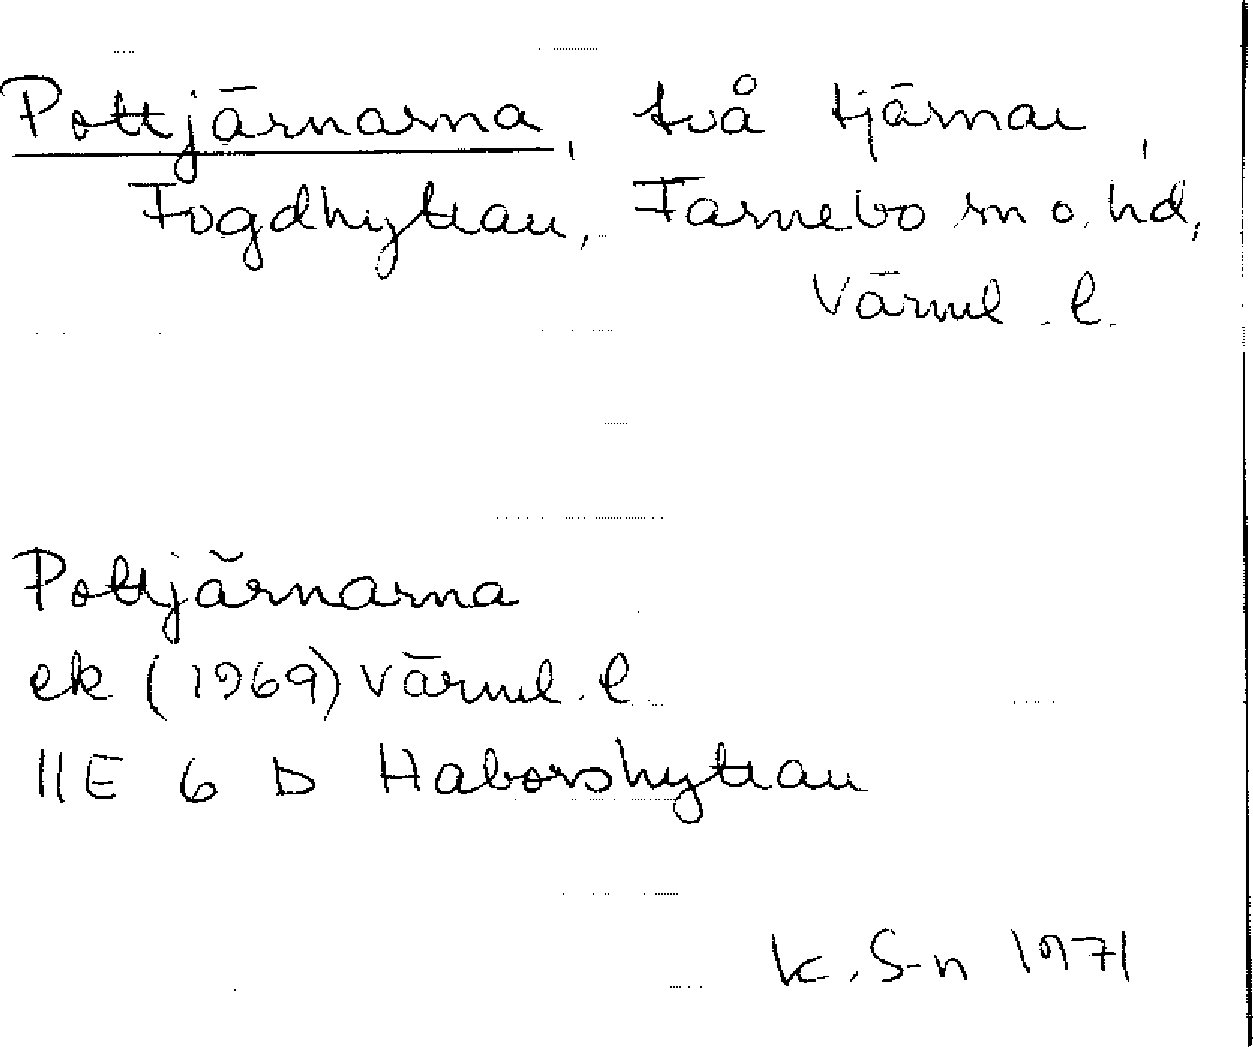 Pottjärnarna, två tjärnar,
Fogdhyttan, Färnebo sn o. hd,
Värml. l.
Pottjärnarna
ek (1969) Värml. l.
11E 6 D Haborshyttan
K. S-n 1971